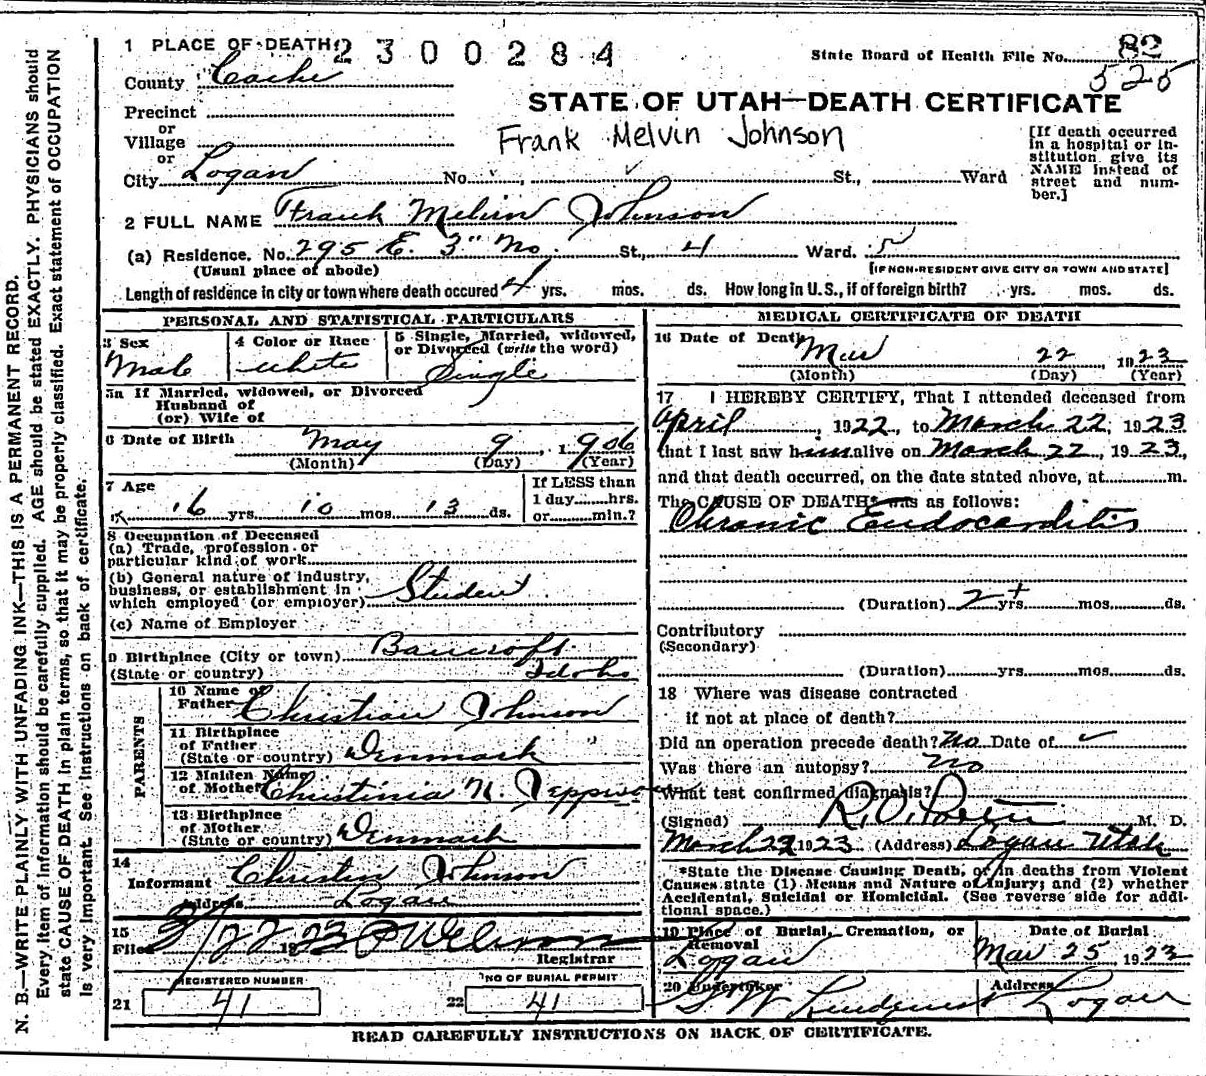 N. B.—WRITE PLAINLY WITH UNFADING INK—THIS IS A PERMANENT RECORD.
Every item of information should be carefully supplied. AGE should be stated EXACTLY. PHYSICIANS should
state CAUSE OF DEATH in plain terms, so that it may be properly classified. Exact statement of OCCUPATION
is very important. See instructions on back of certificate.
1 PLACE OF DEATH 2300284
State Board of Health File No. 82
525
County Cache
STATE OF UTAH—DEATH CERTIFICATE
Precinct
or
Village
or
Frank Melvin Johnson
[If death occurred in a hospital or institution give its NAME instead of street and number.]
City Logan No. St., Ward
2 FULL NAME Frank Melvin Johnson
(a) Residence. No. 295 E. 3" No. St., 4 Ward. 5
(Usual place of abode) [IF NON-RESIDENT GIVE CITY OR TOWN AND STATE]
Length of residence in city or town where death occured 4 yrs. mos. ds. How long in U. S., if of foreign birth? yrs. mos. ds.
PERSONAL AND STATISTICAL PARTICULARS
3 Sex
Male
4 Color or Race
White
5 Single, Married, widowed, or Divorced (write the word)
Single
5a If Married, widowed, or Divorced
Husband of
(or) Wife of
6 Date of Birth May 9, 1906
(Month) (Day) (Year)
7 Age
16 yrs. 10 mos. 13 ds.
If LESS than
1 day......hrs.
or......min.?
8 Occupation of Deceased
(a) Trade, profession or
particular kind of work
(b) General nature of industry,
business, or establishment in
which employed (or employer) Student
(c) Name of Employer
9 Birthplace (City or town) Bancroft
(State or country) Idaho
PARENTS
10 Name of
Father Christian Johnson
11 Birthplace
of Father
(State or country) Denmark
12 Maiden Name
of Mother Christinia N.
13 Birthplace
of Mother
(State or country) Denmark
14
Informant Johnson
Address Logan
15
Filed 3/22 1923
Registrar
REGISTERED NUMBER
21 41
NO OF BURIAL PERMIT
22 41
MEDICAL CERTIFICATE OF DEATH
16 Date of Death Mar 22 1923
(Month) (Day) (Year)
17 I HEREBY CERTIFY, That I attended deceased from
April, 1922, to March 22, 1923
that I last saw him alive on March 22, 1923,
and that death occurred, on the date stated above, at......m.
The CAUSE OF DEATH* was as follows:
Chronic Endocarditis
(Duration) 2+ yrs. mos. ds.
Contributory
(Secondary)
(Duration) yrs. mos. ds.
18 Where was disease contracted
if not at place of death?
Did an operation precede death? No Date of
Was there an autopsy? No
What test confirmed diagnosis?
(Signed) R. O. Porter M. D.
March 22 1923 (Address) Logan Utah
*State the Disease Causing Death, or in deaths from Violent
Causes state (1) Means and Nature of Injury; and (2) whether
Accidental, Suicidal or Homicidal. (See reverse side for addi-
tional space.)
19 Place of Burial, Cremation, or
Removal
Logan
Date of Burial
Mar 25 1923
20 Undertaker
G W Lindquist
Address
Logan
READ CAREFULLY INSTRUCTIONS ON BACK OF CERTIFICATE.